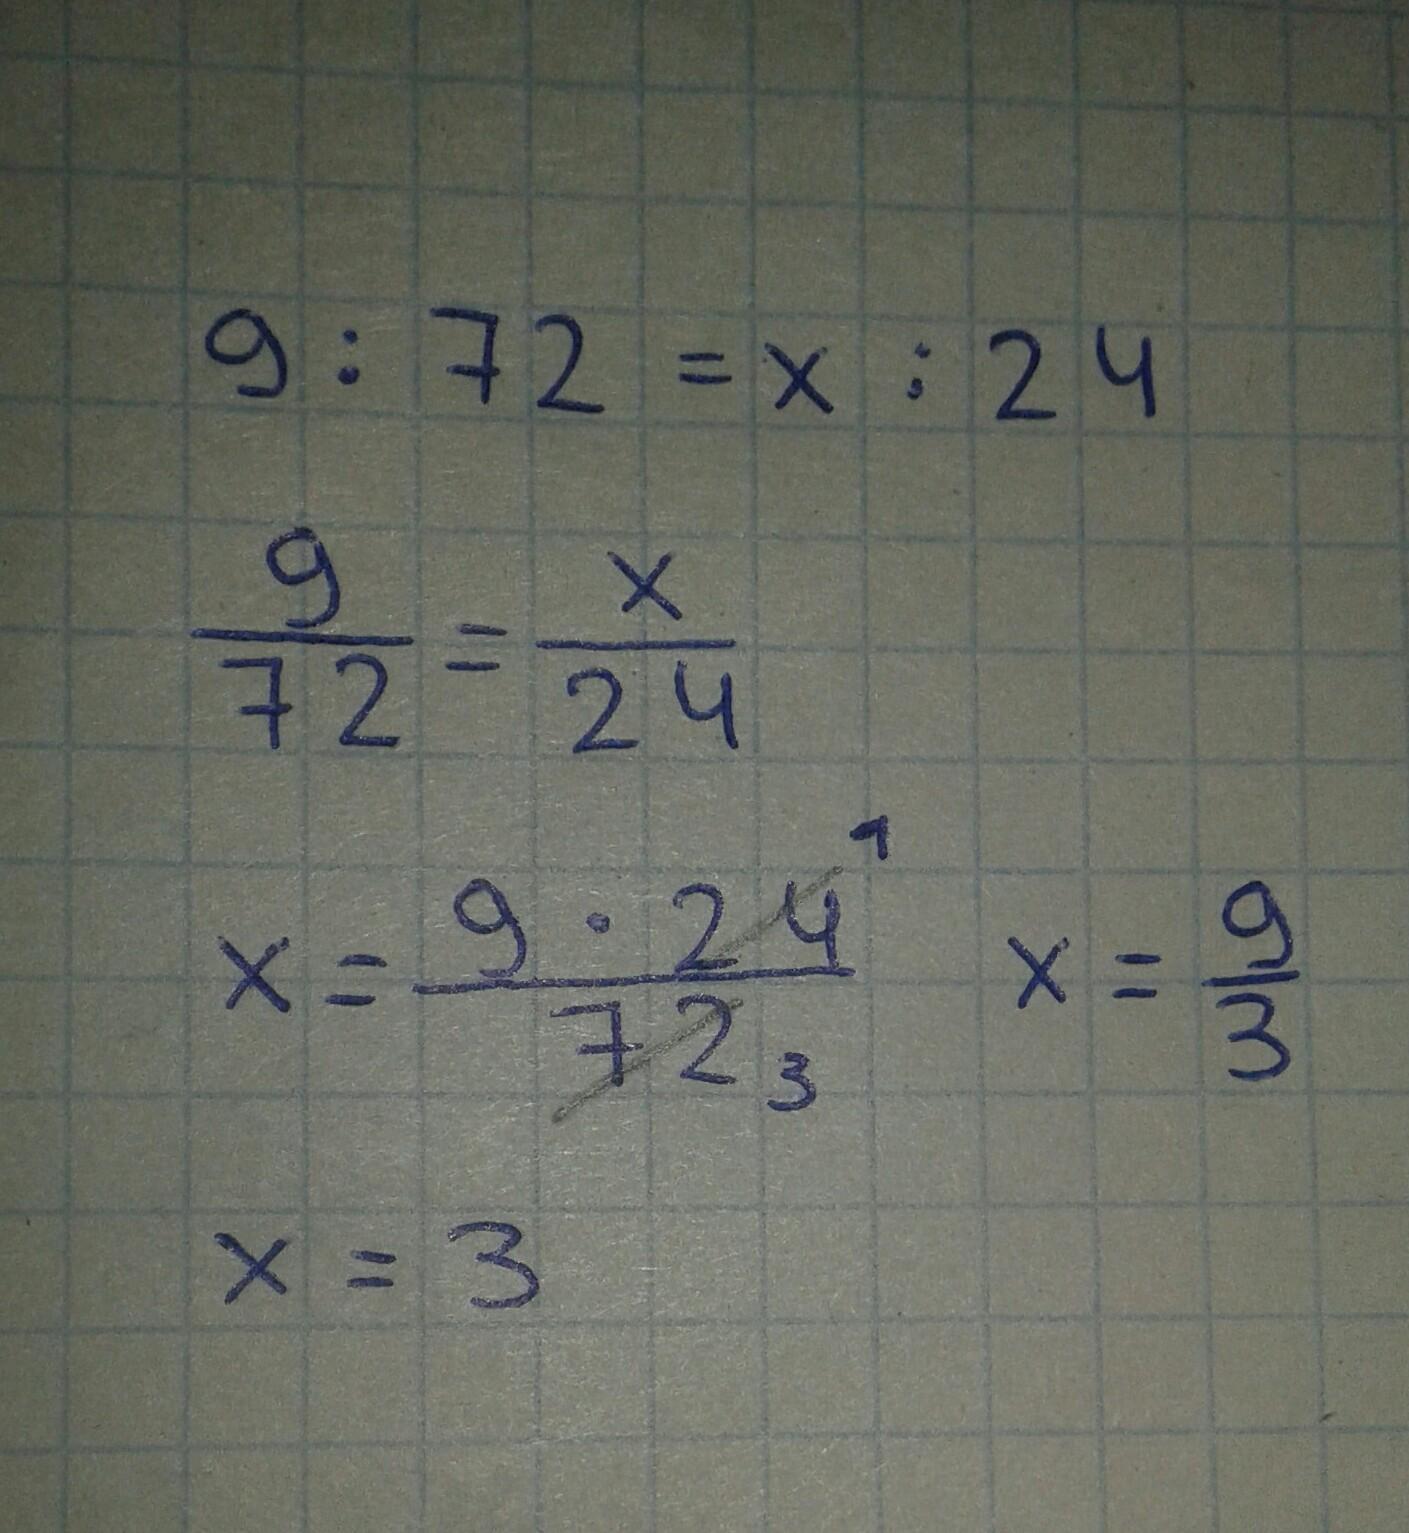 9 : 72 = x : 24
9/72 = x/24
x = 9 · 24 1 / 72 3   x = 9/3
x = 3